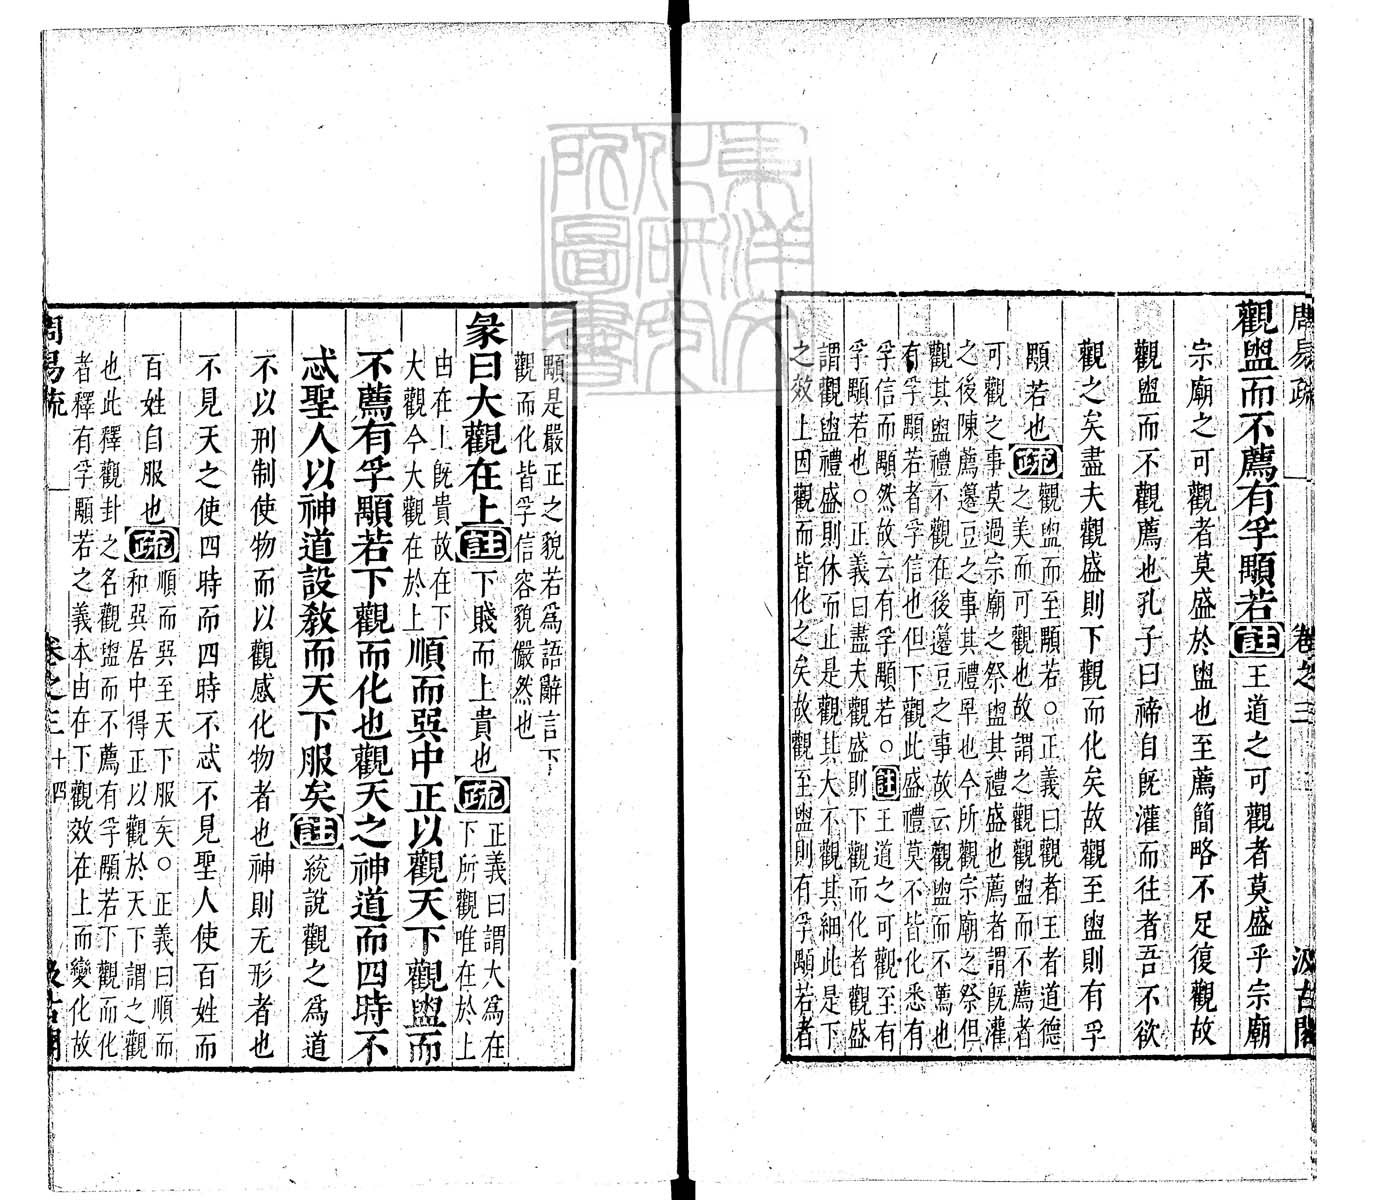 周易疏 卷之三 汲古閣
觀盥而不薦有孚顒若註王道之可觀者莫盛乎宗廟
宗廟之可觀者莫盛於盥也至薦簡略不足復觀故
觀盥而不觀薦也孔子曰禘自旣灌而往者吾不欲
觀之矣盡夫觀盛則下觀而化矣故觀至盥則有孚
顒若也疏觀盥而至顒若○正義曰觀者王者道德
之美而可觀也故謂之觀觀盥而不薦者
可觀之事莫過宗廟之祭盥其禮盛也薦者謂旣灌
之後陳薦籩豆之事其禮卑也今所觀宗廟之祭但
觀其盥禮不觀在後籩豆之事故云觀盥而不薦也
有孚顒若者孚信也但下觀此盛禮莫不皆化悉有
孚信而顒然故云有孚顒若○註王道之可觀至有
孚顒若也○正義曰盡夫觀盛則下觀而化者觀盛
謂觀盥禮盛則休而止是觀其大不觀其細此是下
之效上因觀而皆化之矣故觀至盥則有孚顒若者
顒是嚴正之貌若爲語辭言下
觀而化皆孚信容貌儼然也
彖曰大觀在上註下賤而上貴也疏正義曰謂大爲在
下所觀唯在於上
由在上旣貴故在下
大觀今大觀在於上順而巽中正以觀天下觀盥而
不薦有孚顒若下觀而化也觀天之神道而四時不
忒聖人以神道設敎而天下服矣註統說觀之爲道
不以刑制使物而以觀感化物者也神則无形者也
不見天之使四時而四時不忒不見聖人使百姓而
百姓自服也疏順而巽至天下服矣○正義曰順而
和巽居中得正以觀於天下謂之觀
也此釋觀卦之名觀盥而不薦有孚顒若下觀而化
者釋有孚顒若之義本由在下觀效在上而變化故
周易疏 卷之三 十四 汲古閣
東洋文化研究所圖書